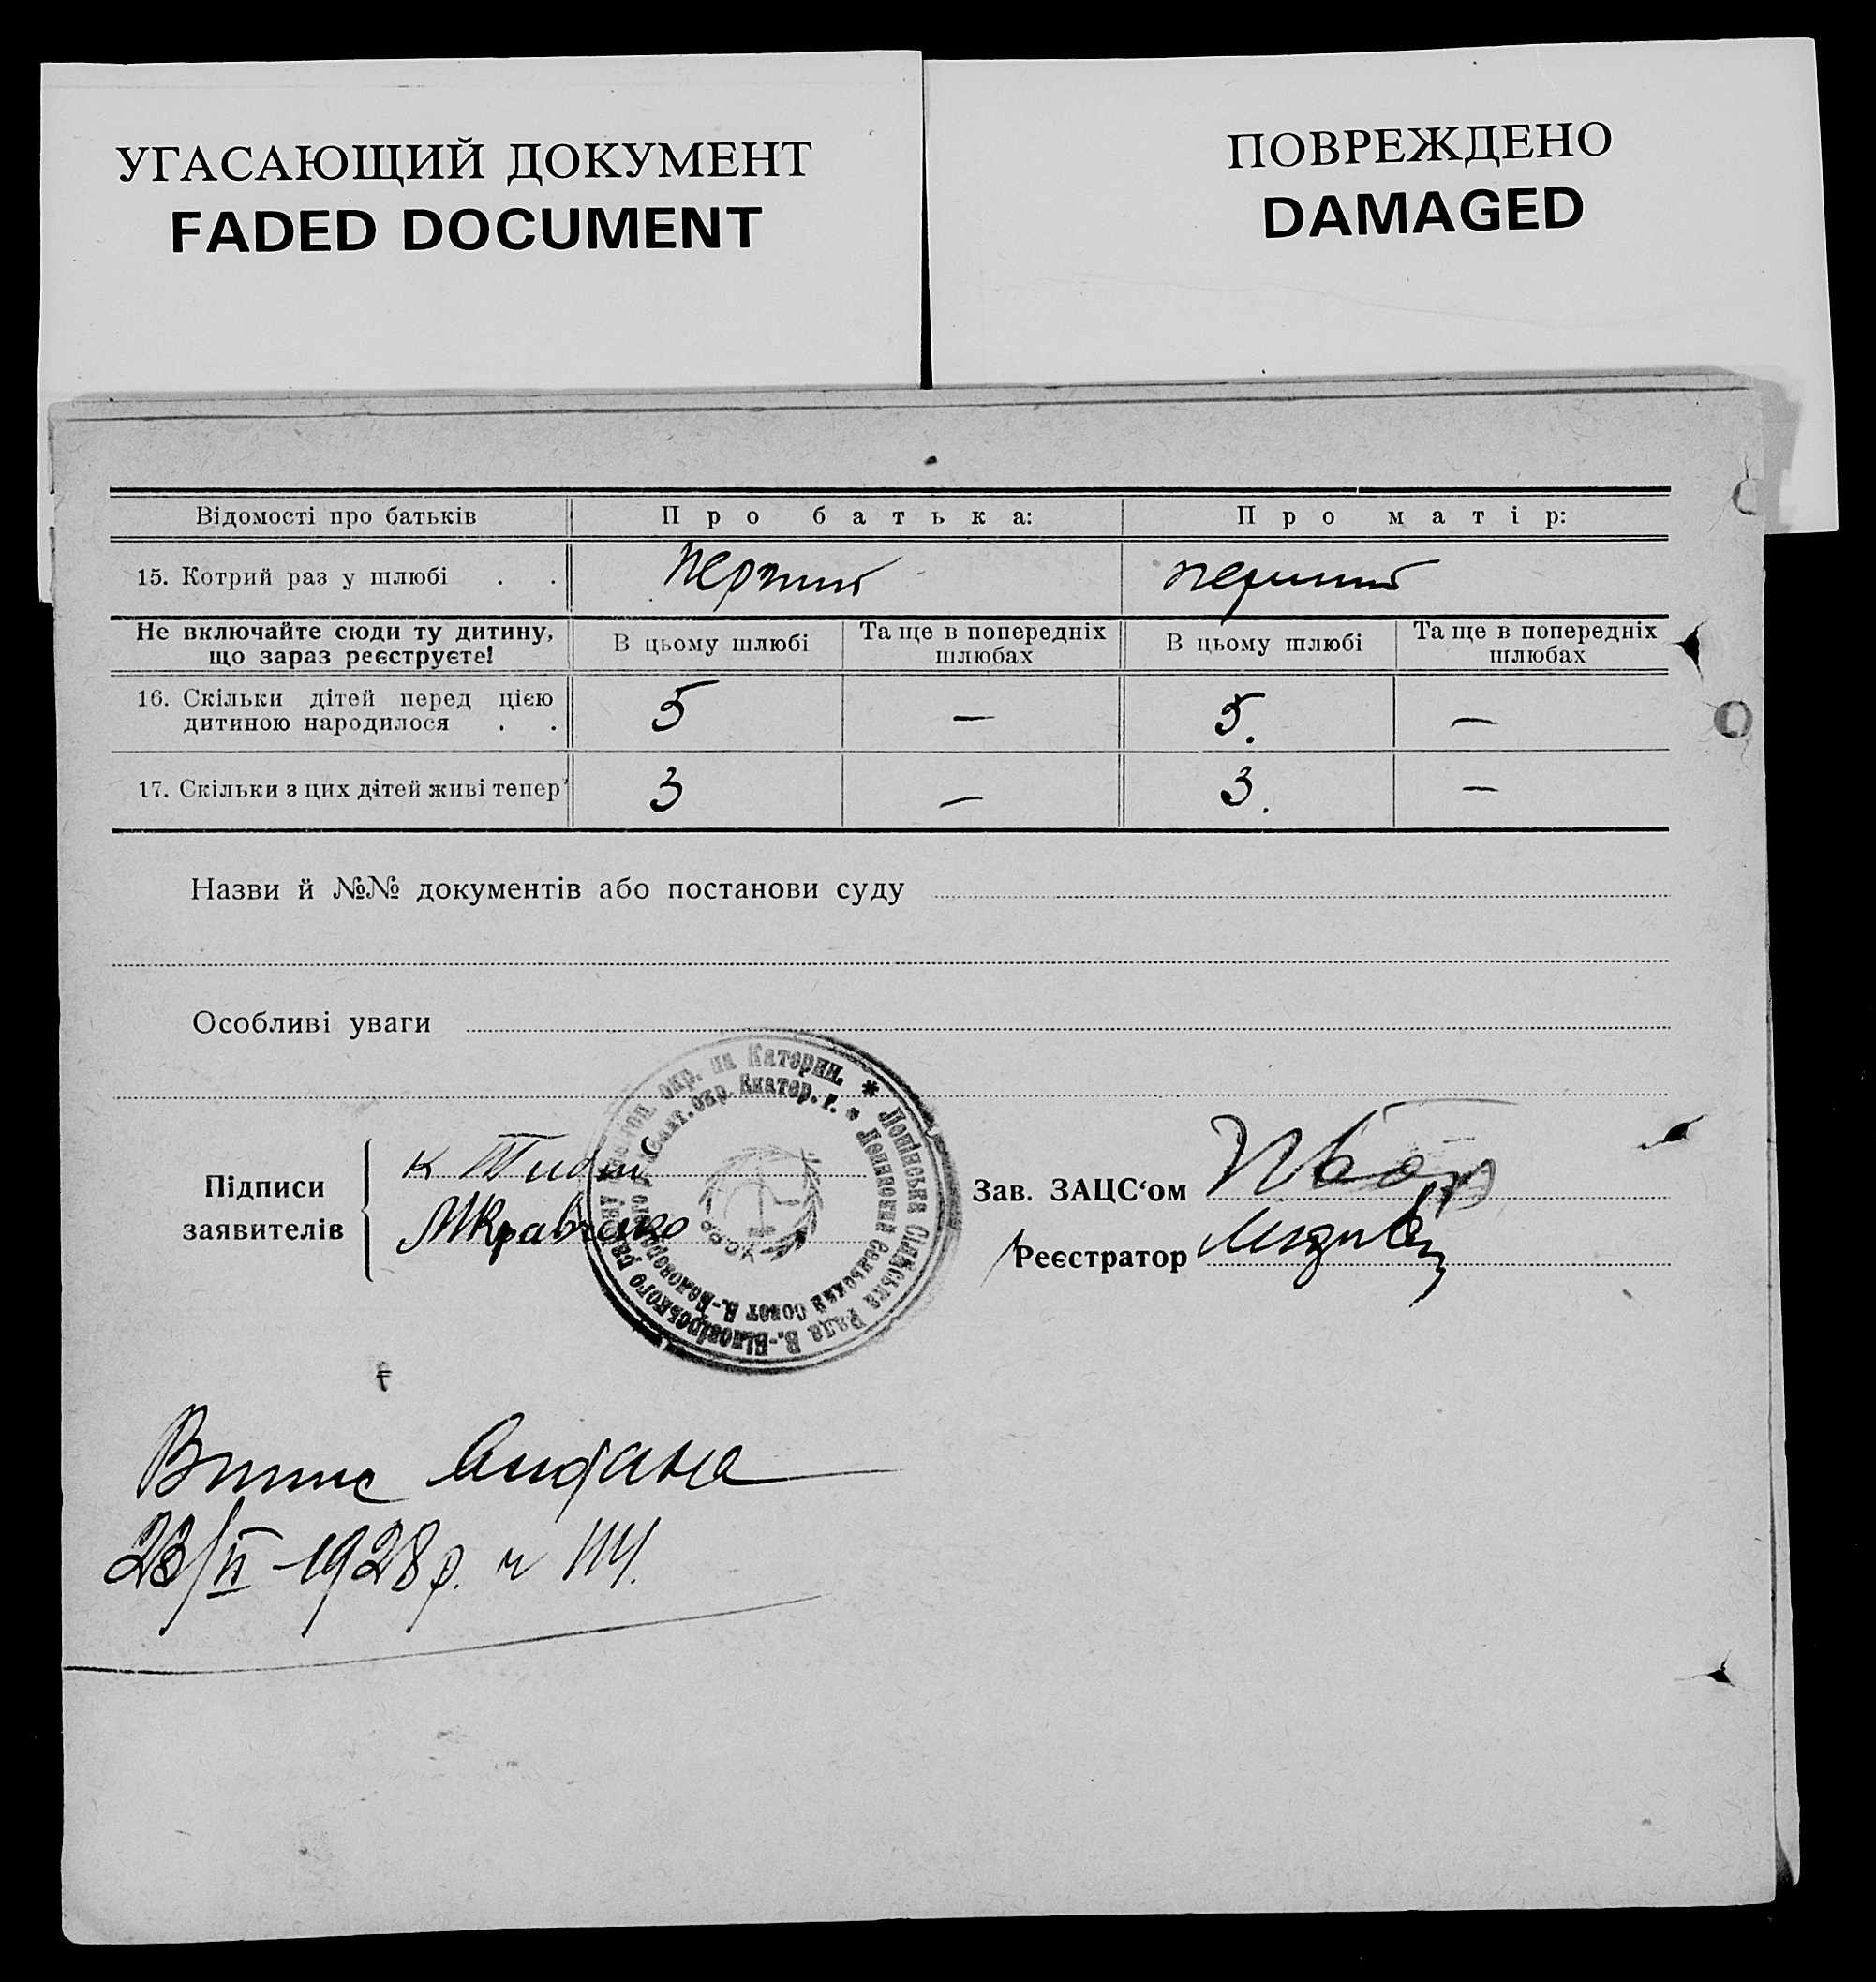 УГАСАЮЩИЙ ДОКУМЕНТ
FADED DOCUMENT
ПОВРЕЖДЕНО
DAMAGED
Відомості про батьків Про батька: Про матір:
15. Котрий раз у шлюбі . . перший перший
Не включайте сюди ту дитину, що зараз реєструєте! В цьому шлюбі Та ще в попередніх шлюбах В цьому шлюбі Та ще в попередніх шлюбах
16. Скільки дітей перед цією
дитиною народилося . . 5 — 5. —
17. Скільки з цих дітей живі тепер 3 — 3. —
Назви й №№ документів або постанови суду
Особливі уваги
Підписи
заявителів
МКравченко
Зав. ЗАЦС‘ом
Реєстратор
окр. на Катерин. * Лепінська Сільська Рада В.-Білозірського району
окр. Екатер. г. * Сельский Совет В.-Белозерского
УСРР
Випис видана
23/II 1928 р. ч 114.